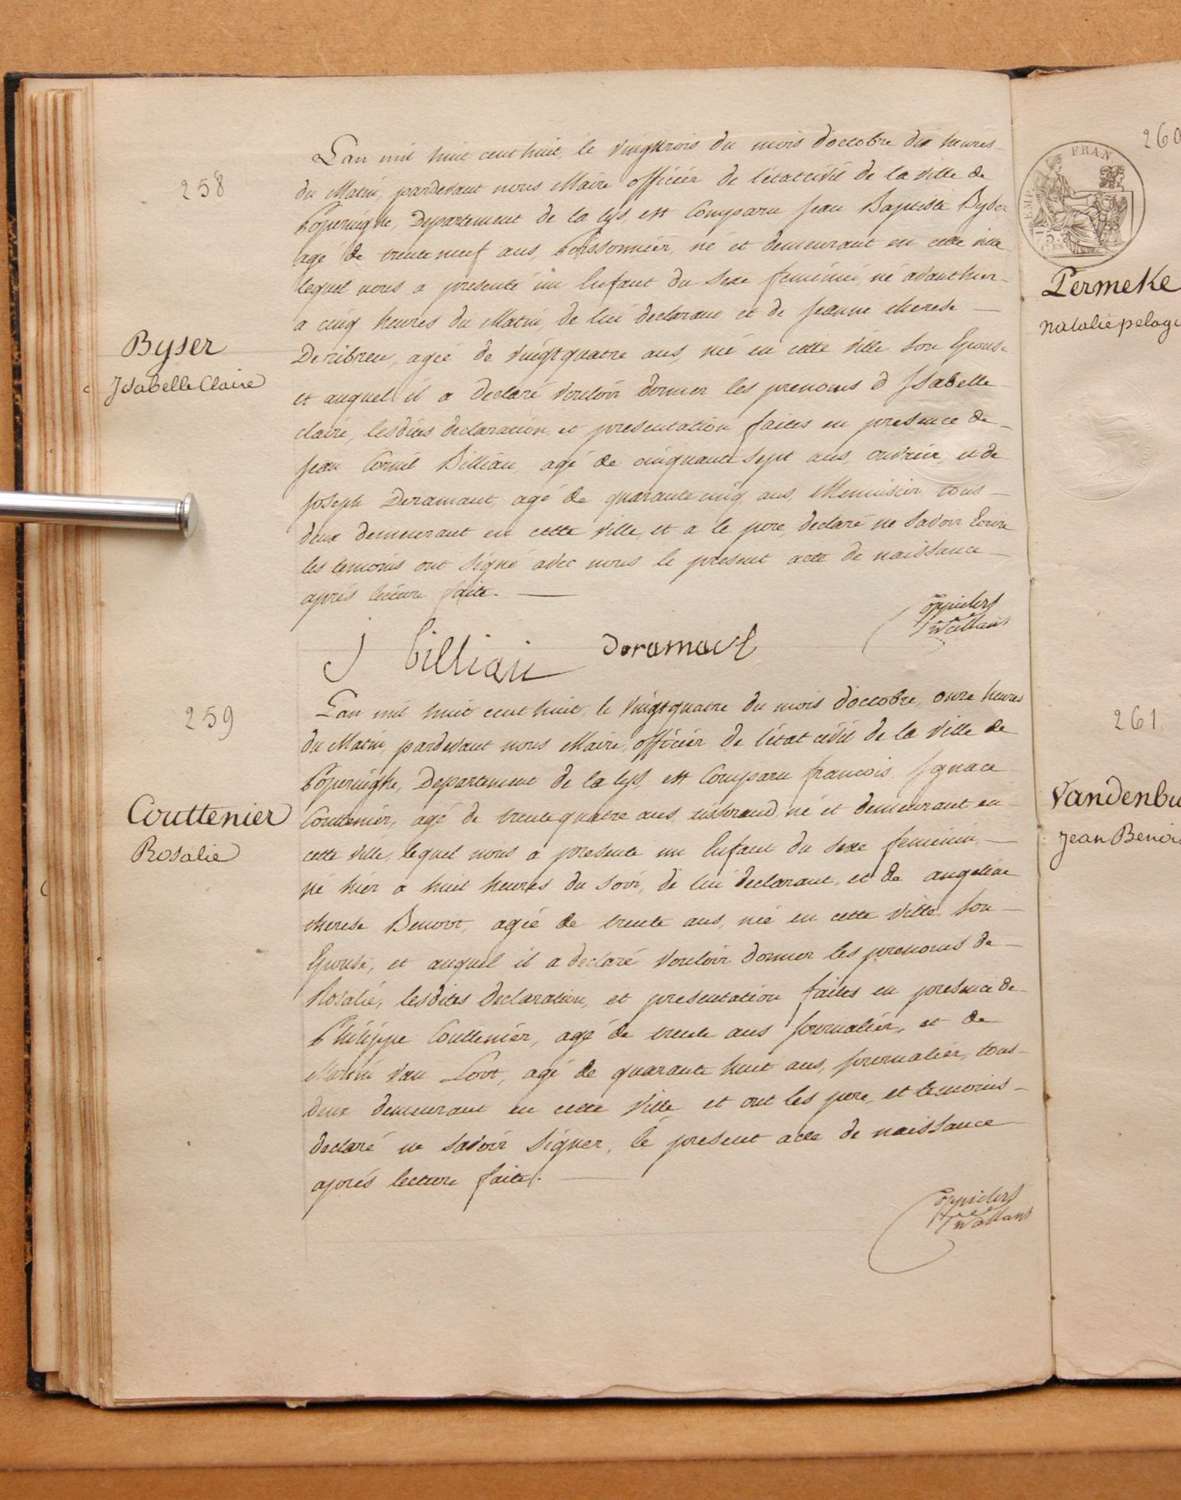 258
Byser
Isabelle Claire
L'an mil huit cent huit, le vingt trois du mois d'octobre dix heures
du Matin, pardevant nous Maire officier de l'état civil de la ville de
Poperinghe, Departement de la Lys, est Comparu Jean Baptiste Byser
agé de trente neuf ans, Poissonnier, né et demeurant en cette ville
lequel nous a presenté un Enfant du Sexe feminin, né avant hier
a cinq heures du Matin, de lui declarant et de Jeanne therese
Deribreu, agée de vingt quatre ans, née en cette Ville, Son Epouse
et auquel il a declaré Vouloir donner les prenoms d'Isabelle
Claire, lesdites declaration et presentation faites en presence de
Jean Cornil Billiau, agé de cinquante sept ans, ouvrier, et de
Joseph Deramaut, agé de quarante cinq ans, Menuisier tous
deux demeurant en cette Ville, et a le pere declaré ne Savoir Ecrire
les temoins ont Signé avec nous le present acte de naissance
après lecture faite.
J Billiau Deramaut
259
Couttenier
Rosalie
L'an mil huit cent huit, le vingt quatre du mois d'octobre, onze heures
du Matin, pardevant nous Maire, officier de l'état civil de la Ville de
Poperinghe, Departement de la Lys, est Comparu francois Ignace
Couttenier, agé de trente quatre ans, né et demeurant en
cette ville, lequel nous a presenté un Enfant du Sexe feminin
né hier a huit heures du Soir, de lui declarant, et de angeline
therese Benoot, agée de trente ans, née en cette Ville Son
Epouse, et auquel il a declaré Vouloir donner les prenoms de
Rosalie, lesdites Declaration, et presentation faites en presence de
Philippe Couttenier, agé de trente ans Journalier, et de
Martin Van Loot, agé de quarante huit ans, Journalier, tous
deux demeurant en cette Ville et ont les pere et temoins
declaré ne savoir Signer, le present acte de naissance
après lecture faite.
260
FRAN
Permeke
natalie pelagi
261
Vandenbu
Jean Benoi